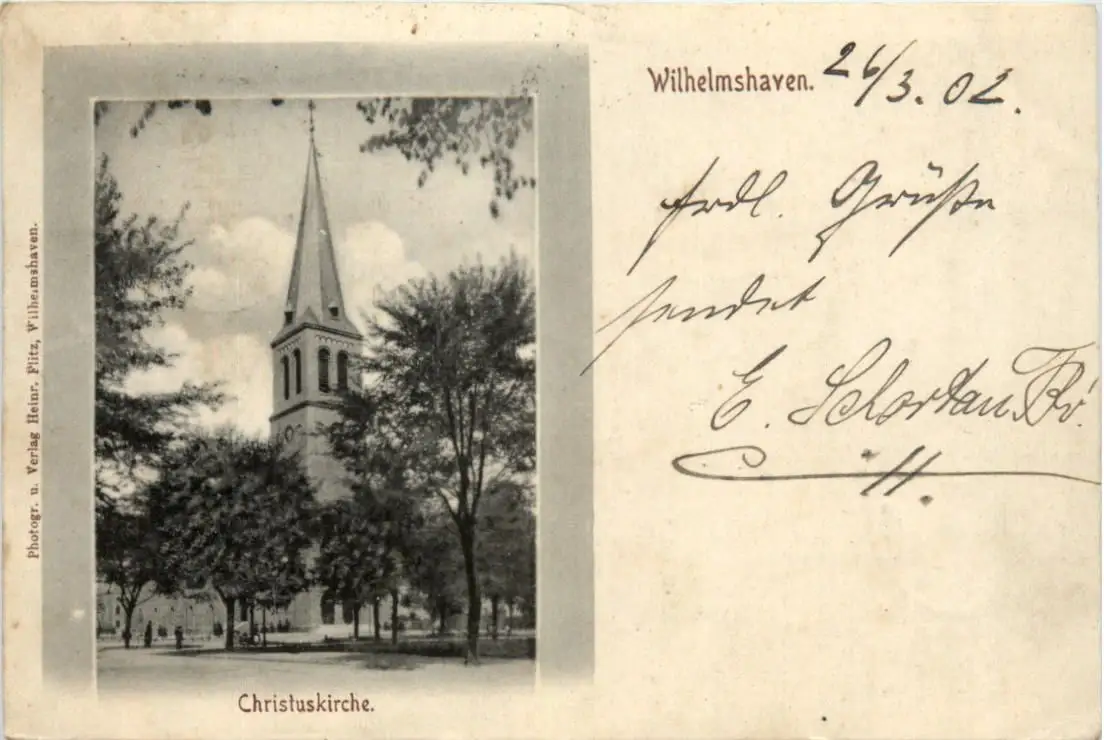 Wilhelmshaven. 26/3. 02.
frdl. Grüße
sendet
E.
Photogr. u. Verlag Heinr. Flitz, Wilhelmshaven.
Christuskirche.